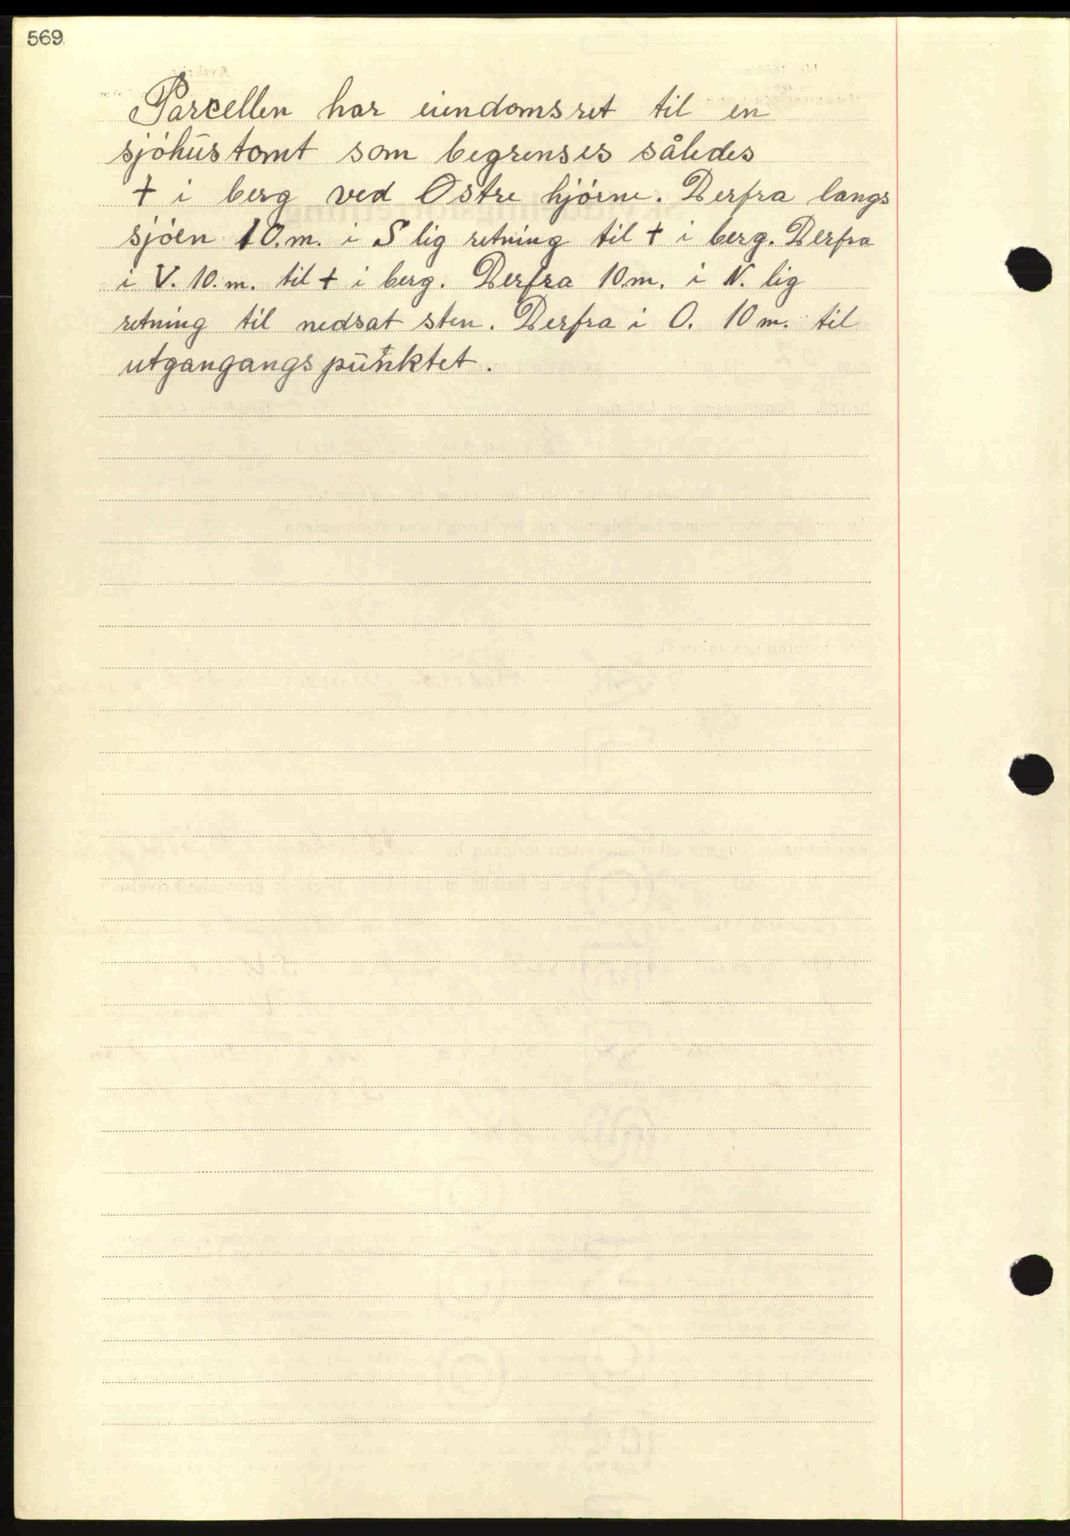 569
Parcellen har eiendomsret til en
sjöhustomt som begrenses således
+ i berg ved Östre hjörne. Derfra langs
sjöen 10.m. i S lig retning til + i berg. Derfra
i V. 10.m. til + i berg. Derfra 10m. i N. lig
retning til nedsat sten. Derfra i O. 10m. til
utgangangspunktet.